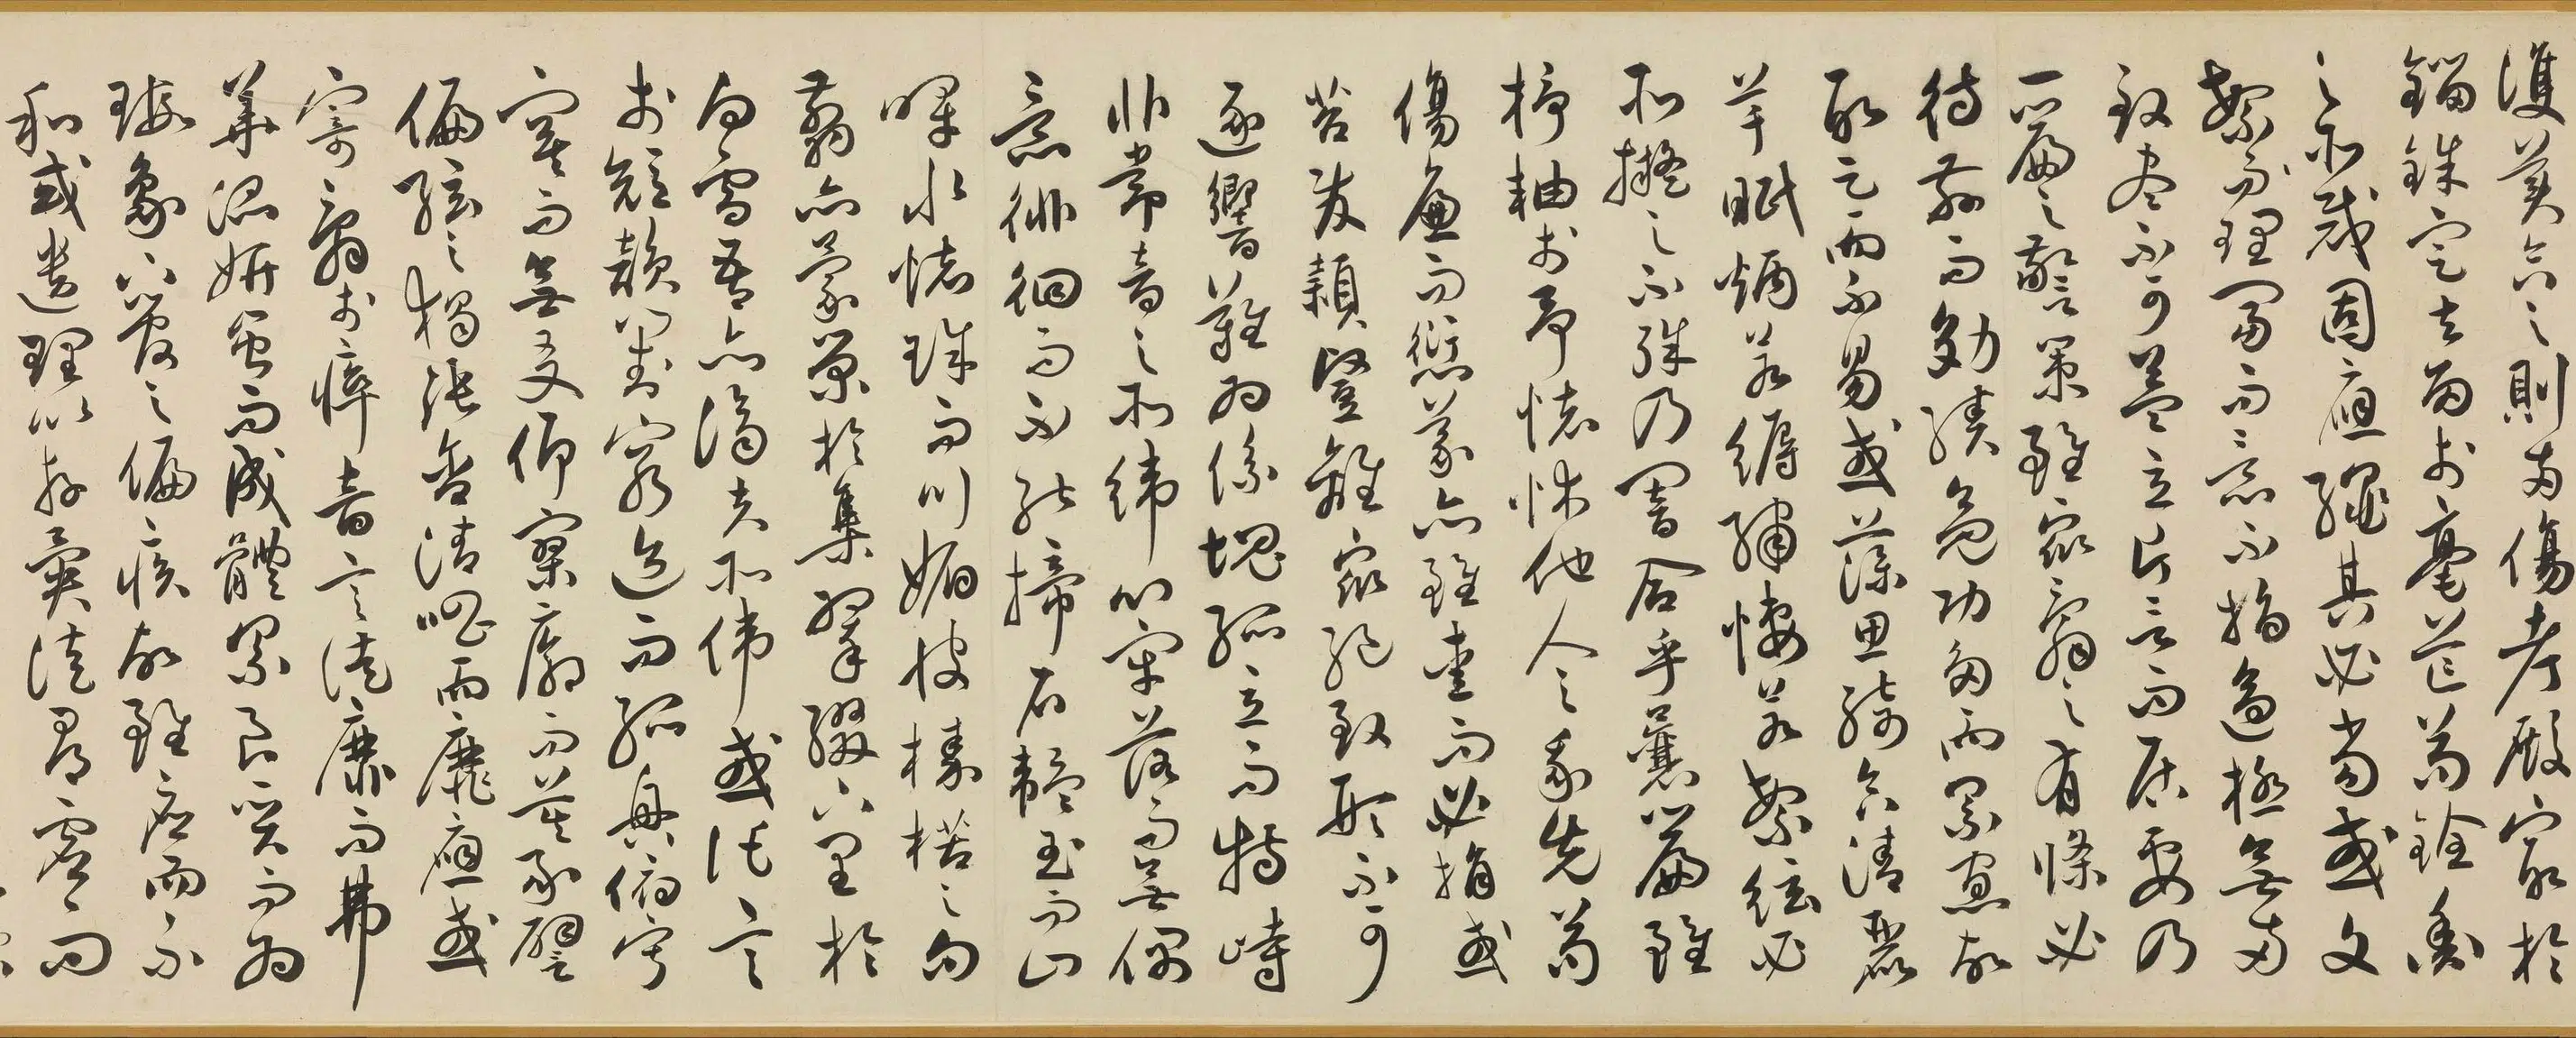 雙美合之則兩傷考殿最於
錙銖定去留於毫芒苟銓衡
之所裁固應繩其必當或文
繁理富而意不指適極無兩
致盡不可益立片言而居要乃
一篇之警策雖眾辭之有條必
待茲而効績亮功多而累寡故
取足而不易或藻思綺合清麗
芊眠炳若縟繡悽若繁絃必
所擬之不殊乃闇合乎曩篇雖
杼軸於予懷怵他人之我先苟
傷廉而愆義亦雖愛而必捐或
苕發穎豎離眾絕致形不可
逐響難為係塊孤立而特峙
非常音之所緯心牢落而無偶
意徘徊而不能揥石韞玉而山
暉水懷珠而川媚彼榛楛之勿
翦亦蒙榮於集翠綴下里於
白雪吾亦濟夫所偉或託言
於短韻對窮迹而孤興俯寂
寞而無友仰寥廓而莫承譬
偏絃之獨張含清唱而靡應或
寄辭於瘁音言徒靡而弗
華混妍蚩而成體累良質而為
瑕象下管之偏疾故雖應而不
和或遺理以存異徒尋虛而